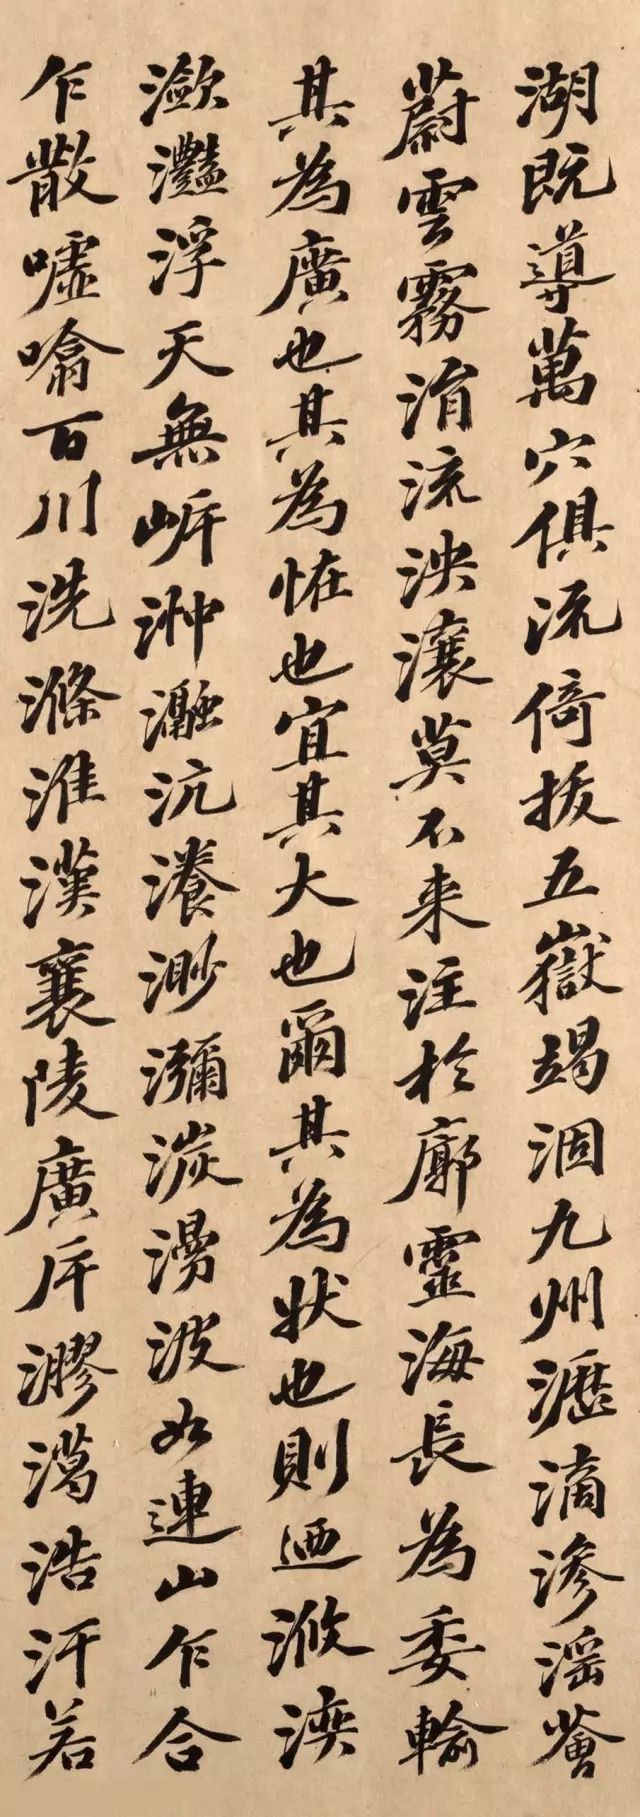 湖既導萬穴俱流倚拔五嶽竭涸九州瀝滴滲滛薈
蔚雲霧涓流泱瀼莫不来注於廓靈海長為委輸
其為廣也其為恠也宜其大也爾其為狀也則迺浟湙
潋灩浮天無岸沖瀜沆瀁渺瀰湠漫波如連山乍合
乍散噓噏百川洗滌淮漢襄陵廣斥㶀㵧浩汗若